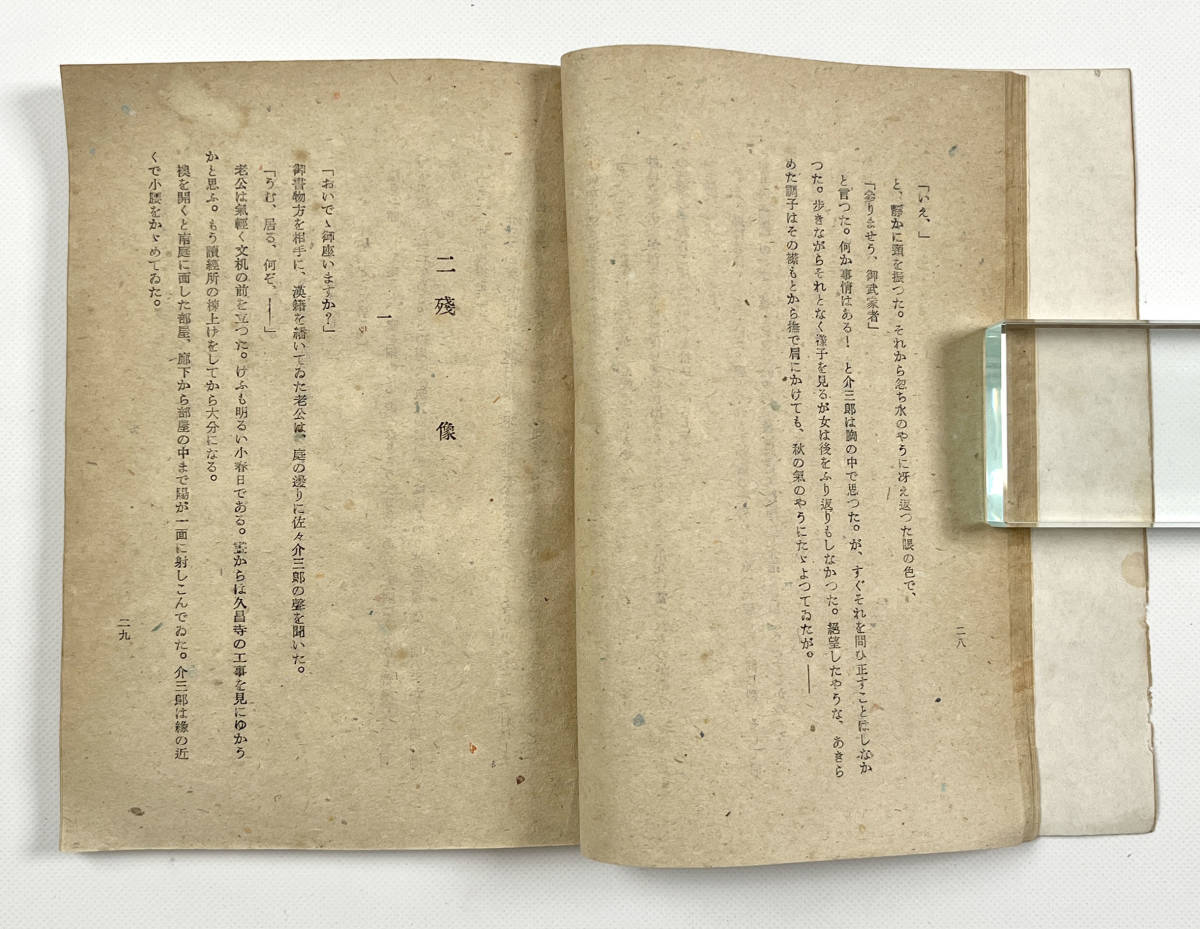 「いえ、」
と、靜かに頭を振つた。それから忽ち水のやうに冴え返つた眼の色で、
「參りませう、御武家者」
と言つた。何か事情はある！　と介三郎は胸の中で思つた。が、すぐそれを問ひ正すことはしなか
つた。歩きながらそれとなく樣子を見るが女は後をふり返りもしなかつた。絕望したやうな、あきら
めた調子はその襟もとから撫で肩にかけても、秋の氣のやうにたゞよつてゐたが。――
二八
二　殘　像
一
「おいでゝ御座いますか？」
御書物方を相手に、漢籍を繙いてゐた老公は、庭の邊りに佐々介三郎の聲を聞いた。
「うむ、居る、何ぞ、――」
老公は氣輕く文机の前を立つた。けふも明るい小春日である。晝からは久昌寺の工事を見にゆかう
かと思ふ。もう讀經所の棟上げをしてから大分になる。
襖を開くと南庭に面した部屋、廊下から部屋の中まで陽が一面に射しこんでゐた。介三郎は緣の近
くで小腰をかゞめてゐた。
二九